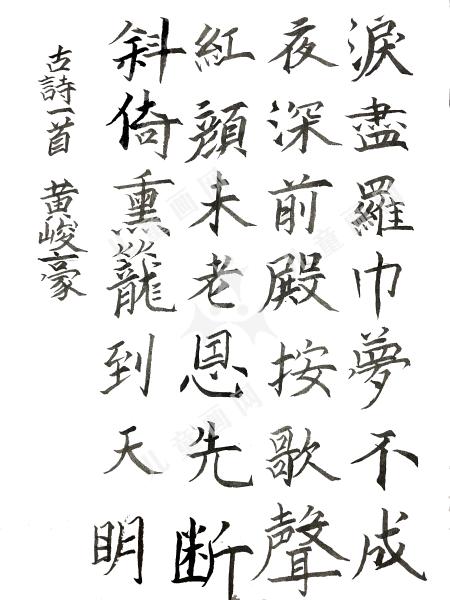 淚盡羅巾夢不成
夜深前殿按歌聲
紅顏未老恩先断
斜倚熏籠到天明
古詩一首 黄峻豪